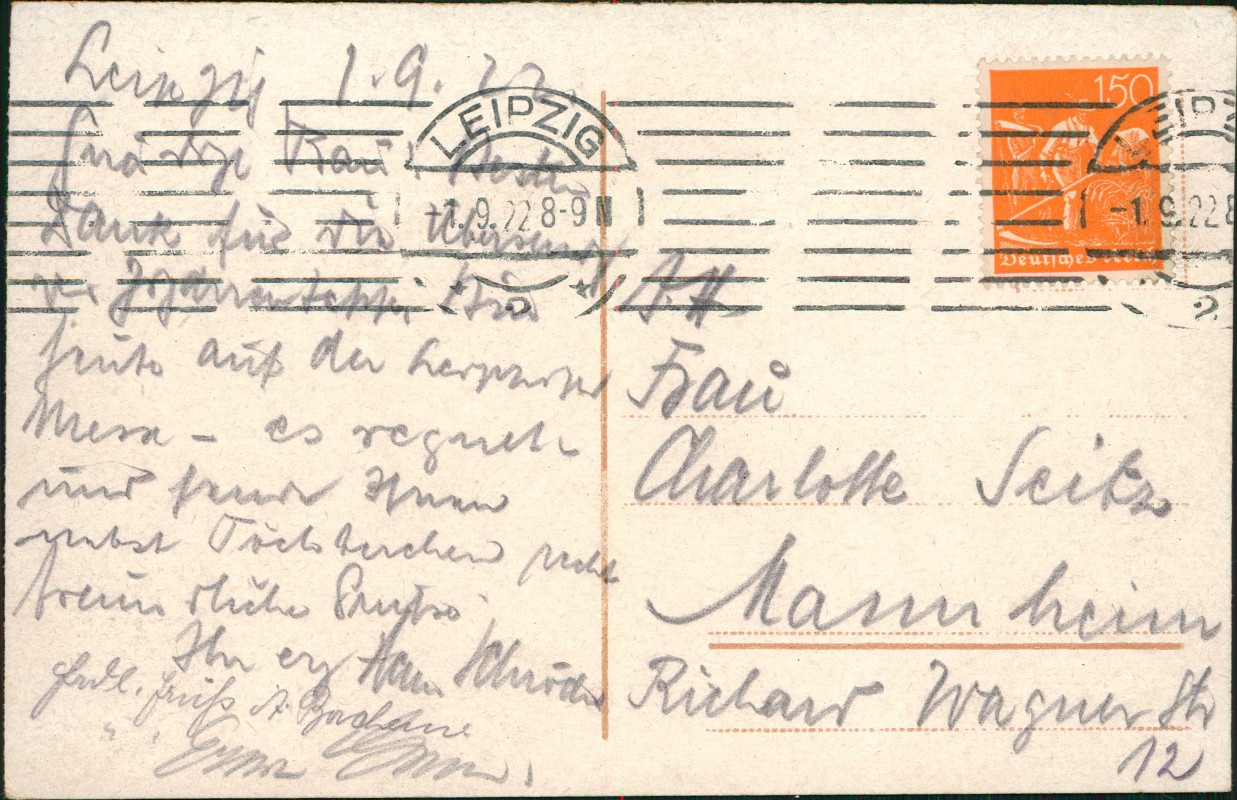 Leipzig 1.9.22.
Gnädige Frau! Besten
Dank für die Übersendg
heute auf der Leipziger
Messe – es regnet
und sende Ihnen
nebst Töchterchen recht
freundliche Grüsse
Ihr erg Hans Schröder
frdl. Gruß A.
LEIPZIG
-1.9.22 8-9 N
2
150
Deutsches Reich
LEIPZ
-1.9.22 8
2
Frau
Charlotte Seitz
Mannheim
Richard Wagner Str
12